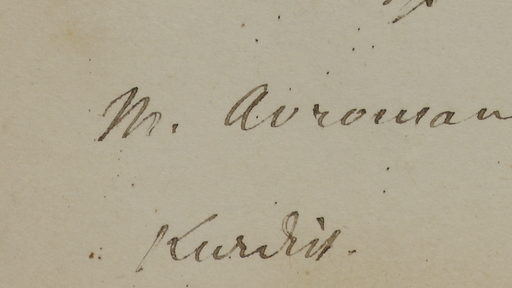 M. Avroman
Kurdis.